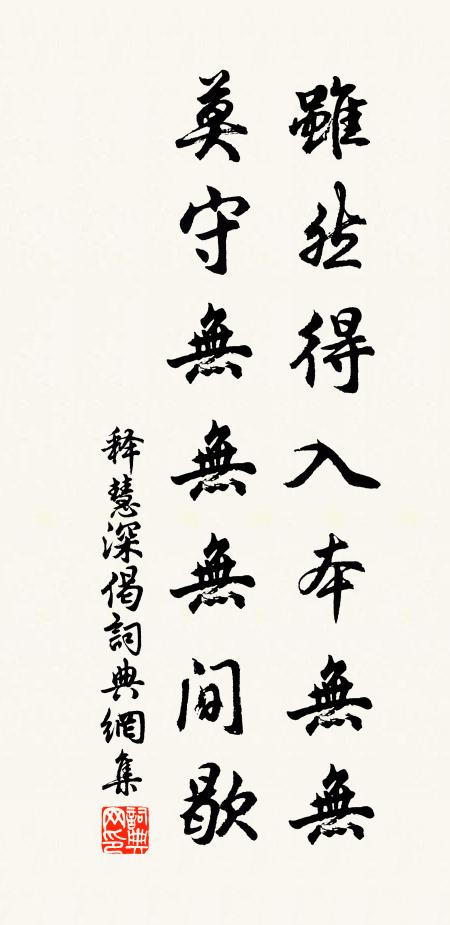 雖然得入本無無
莫守無無無间歇
释慧深偈詞典網集
詞典网印